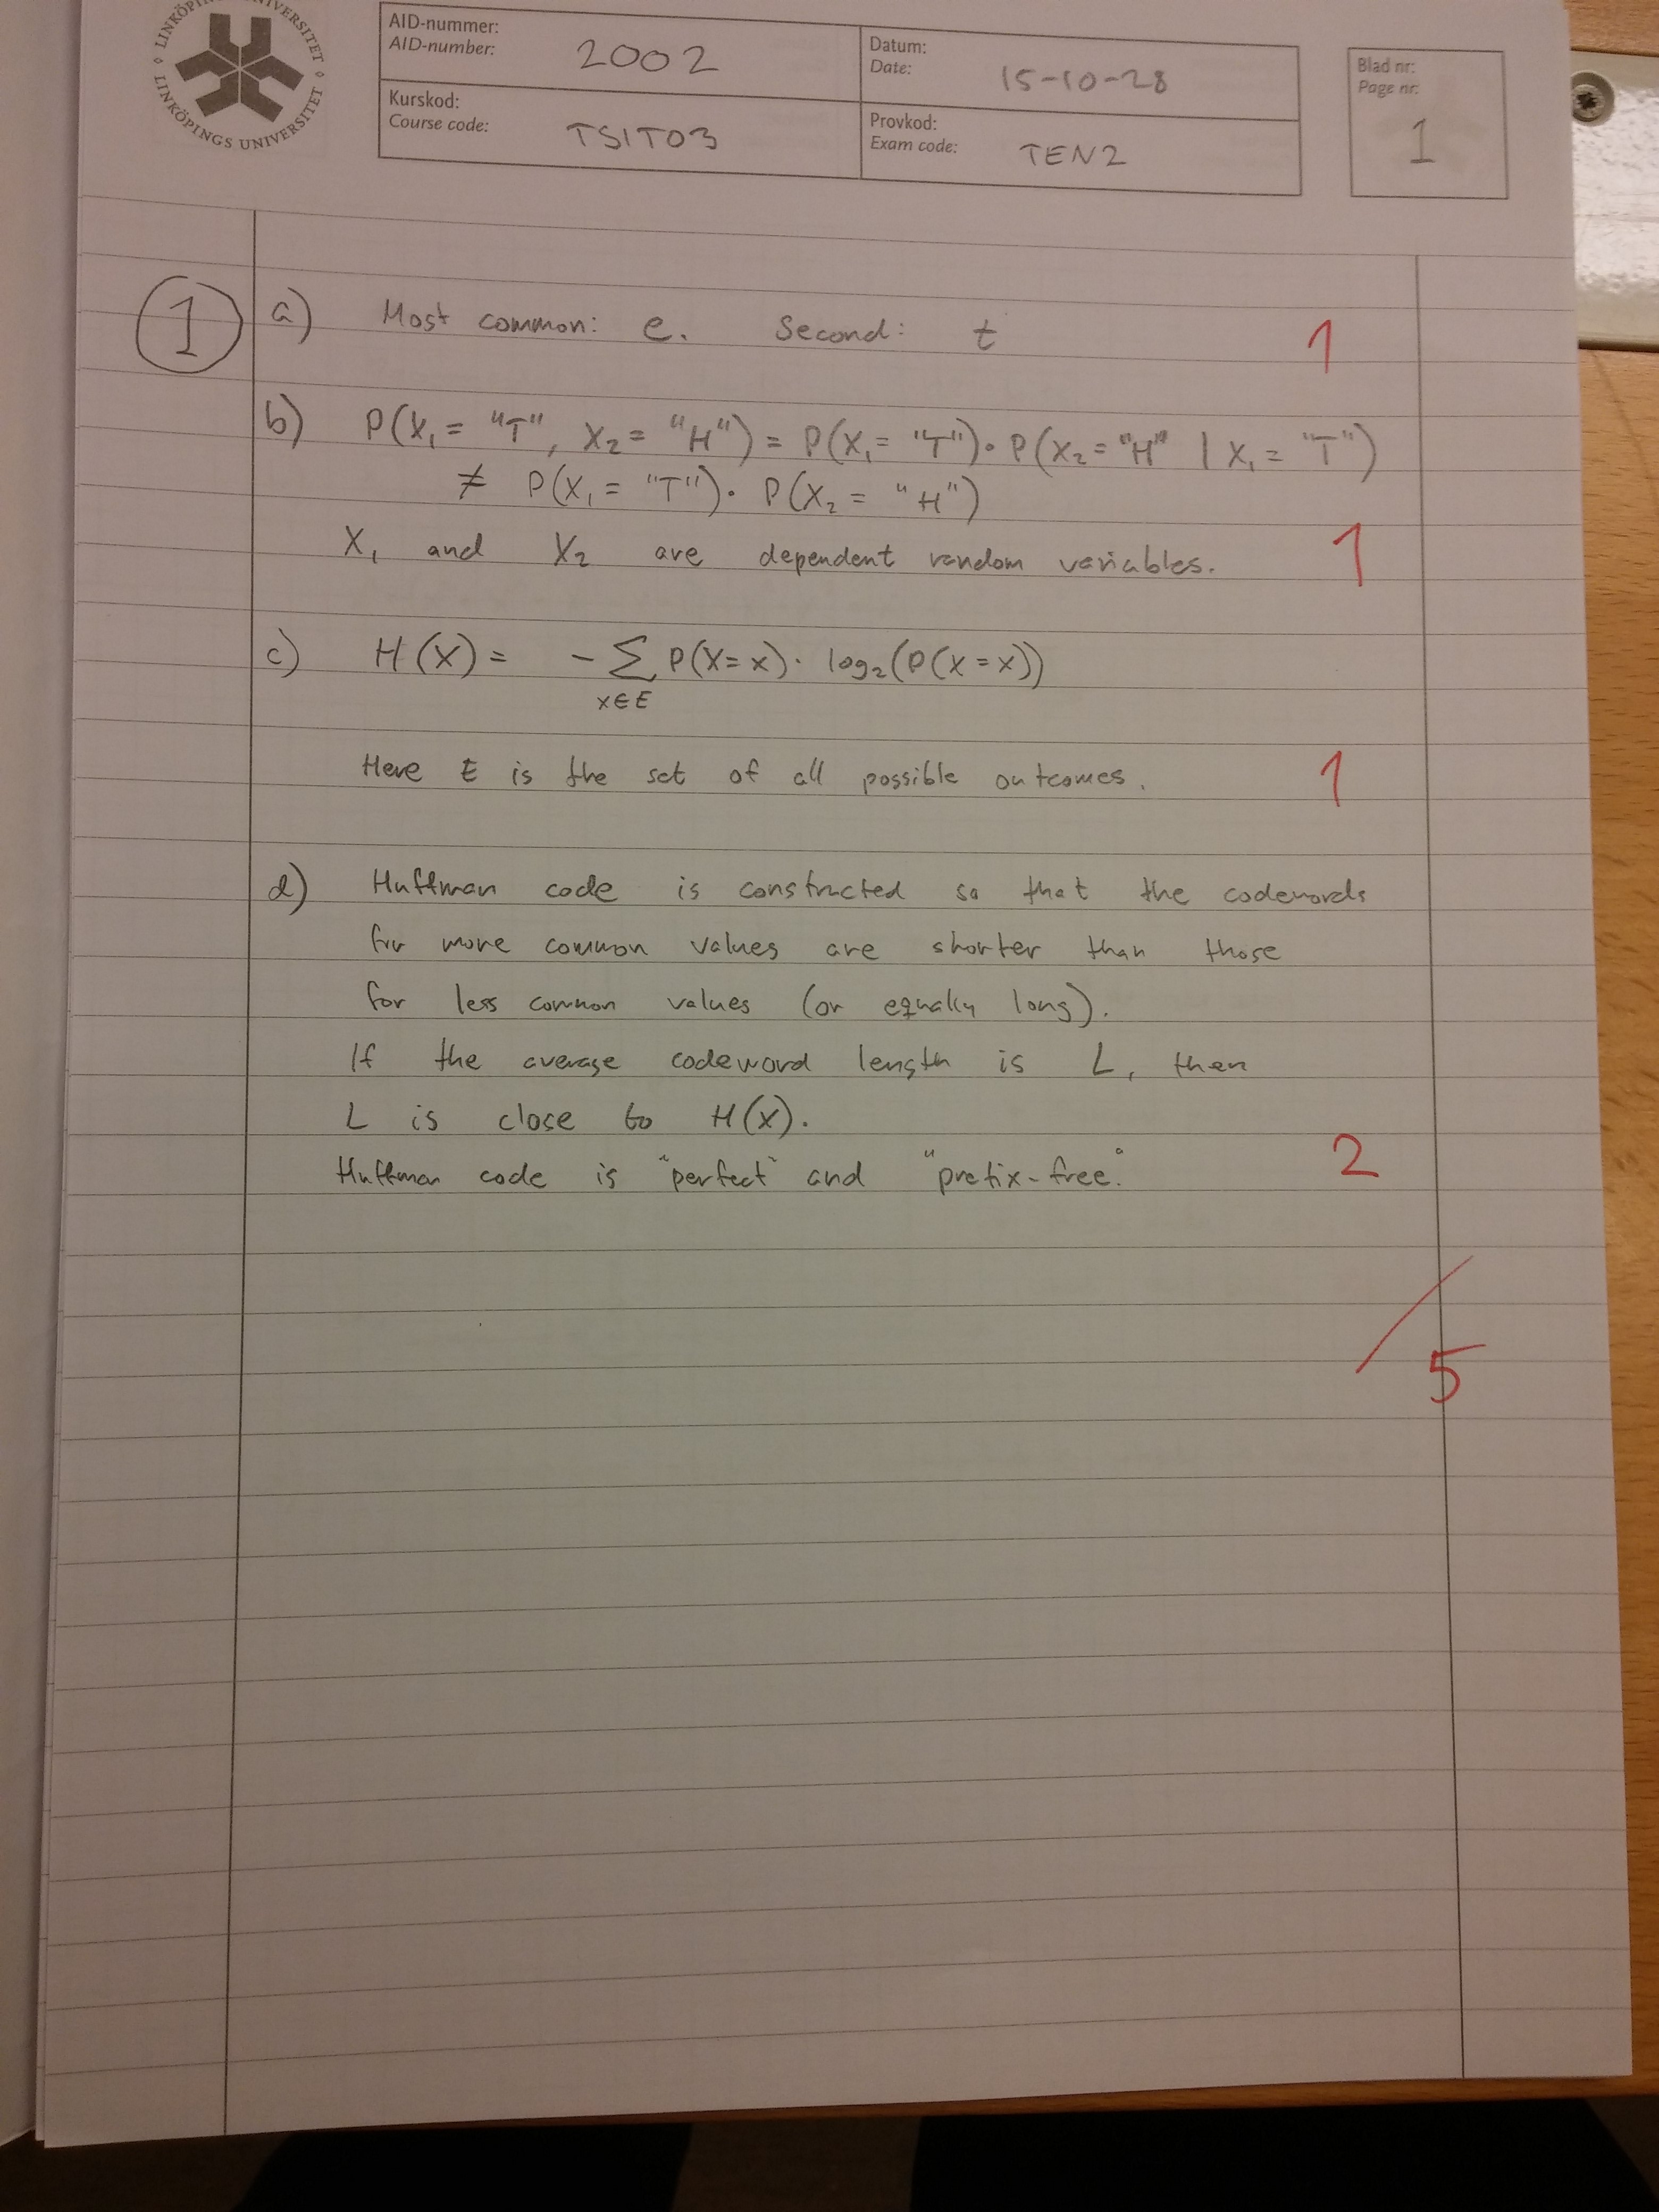 LINKÖPINGS UNIVERSITET
LINKÖPINGS UNIVERSITET
AID-nummer:
AID-number: 2002
Datum:
Date: 15-10-28
Blad nr:
Page nr:
1
Kurskod:
Course code: TSIT03
Provkod:
Exam code: TEN2
1 a) Most common: e. Second: t 1
b) P(X₁ = "T", X₂ = "H") = P(X₁ = "T") · P(X₂ = "H" | X₁ = "T")
≠ P(X₁ = "T") · P(X₂ = "H")
X₁ and X₂ are dependent random variables. 1
c) H(X) = - ∑ P(X=x) · log₂(P(X=x))
x∈E
Here E is the set of all possible outcomes. 1
d) Huffman code is constructed so that the codewords
for more common values are shorter than those
for less common values (or equally long).
If the average codeword length is L, then
L is close to H(X).
Huffman code is "perfect" and "prefix-free". 2
/5